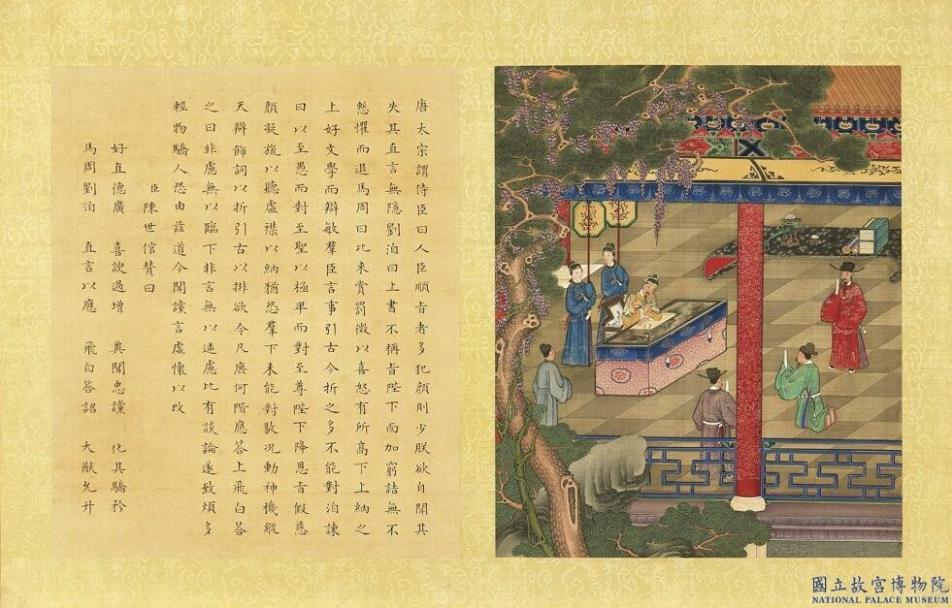 唐太宗謂侍臣曰人臣順旨者多犯顏則少朕欲自聞其
失其直言無隱劉洎曰上書不稱旨陛下面加窮詰無不
慙懼而退馬周曰比來賞罰微以喜怒有所高下上納之
上好文學而辯敏羣臣言事引古今折之多不能對洎諫
曰以至愚而對至聖以極卑而對至尊陛下降恩旨假慈
顏凝旒以聽虛襟以納猶恐羣下未能對敭況動神機縱
天辯飾詞以折引古以排欲令凡庶何階應答上飛白答
之曰非慮無以臨下非言無以述慮比有談論遂致煩多
輕物驕人恐由茲道今聞讜言虛懷以改
臣陳世倌贊曰
好直德廣 喜諛過增 冀聞忠讜 化其驕矜
馬周劉洎 直言以應 飛白答詔 大猷允升
國立故宮博物院
NATIONAL PALACE MUSEUM